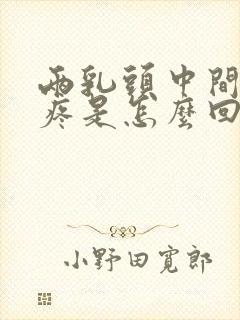 兩乳頭中間
疼是怎麼回
小野田寬郎